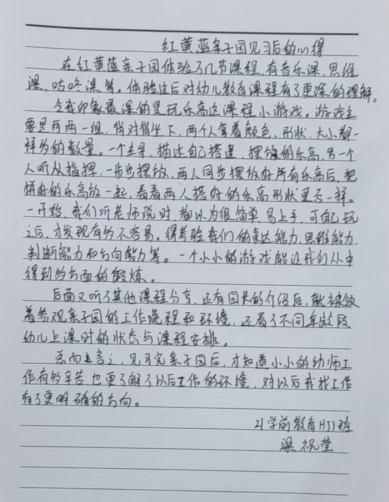 红黄蓝亲子园见习后的心得
在红黄蓝亲子园体验了几节课程,有音乐课,思维
课,咕咚课等。体验过后对幼儿教育课程有了更深的理解。
令我印象最深的是玩乐高这课程小游戏。游戏主
要是两两一组,背对背坐下,两个人拿着颜色,形状,大小都一
样的的数量。一个主导,描述自己搭建,摆放的乐高,另一个
人听从指挥,一步步摆放,两人同步摆放好所有乐高后,把
拼好的乐高放一起,看看两人搭好的乐高形状是否一样。
一开始,我们听老师说时,都以为很简单易上手,可自己玩
过后,才发现有的不容易,得考验我们的表达能力,思维能力,
判断能力和方向能力等。一个小小的游戏能让我们从中
得到的方面的锻炼。
后面又听了其他课程分享,还有园长的介绍后,就被领
着参观亲子园的工作流程和环境,还看了不同年龄段
幼儿上课时的状态与课程安排。
总而言之,见习完亲子园后,才知道小小的幼师工
作有的辛苦,也更了解了以后工作的环境,对以后我找工作
有了更明确的方向。
21学前教育H11班
梁